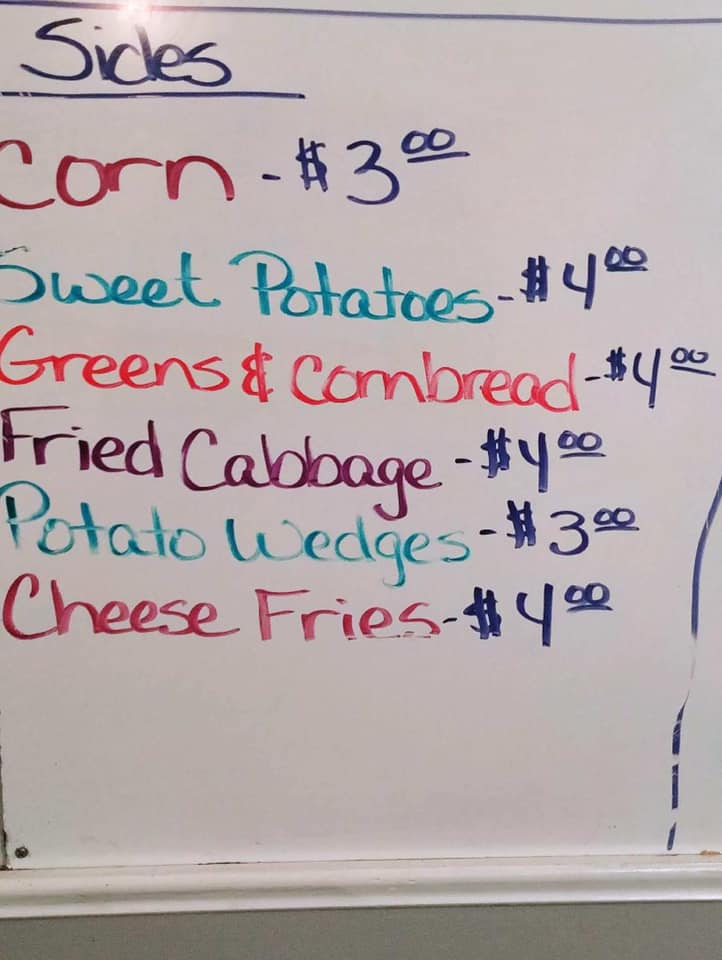 Sides
Corn - $3.00
Sweet Potatoes - $4.00
Greens & Cornbread - $4.00
Fried Cabbage - $4.00
Potato Wedges - $3.00
Cheese Fries - $4.00